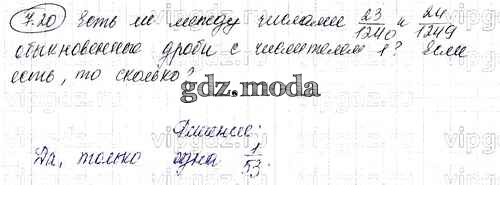 7.20 Есть ли между числами 23/1240 и 24/1249
обыкновенные дроби с числителем 1? Если
есть, то сколько?
gdz.moda
Решение:
Да, только одна 1/53.